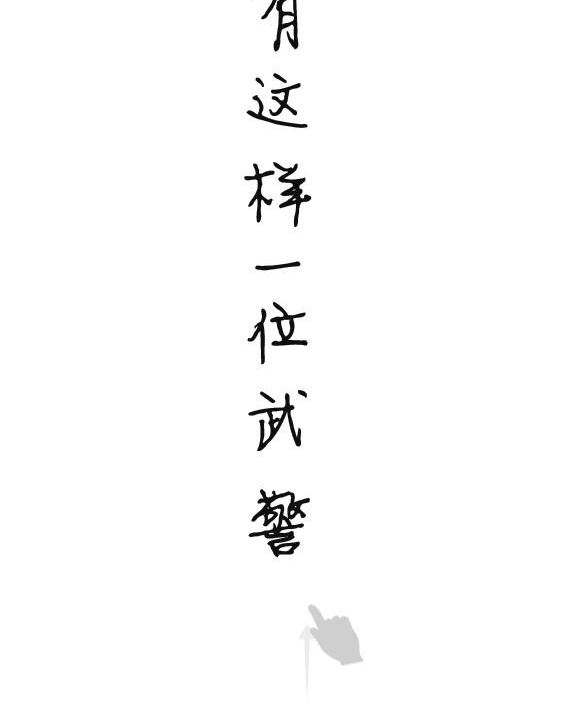 有这样一位武警